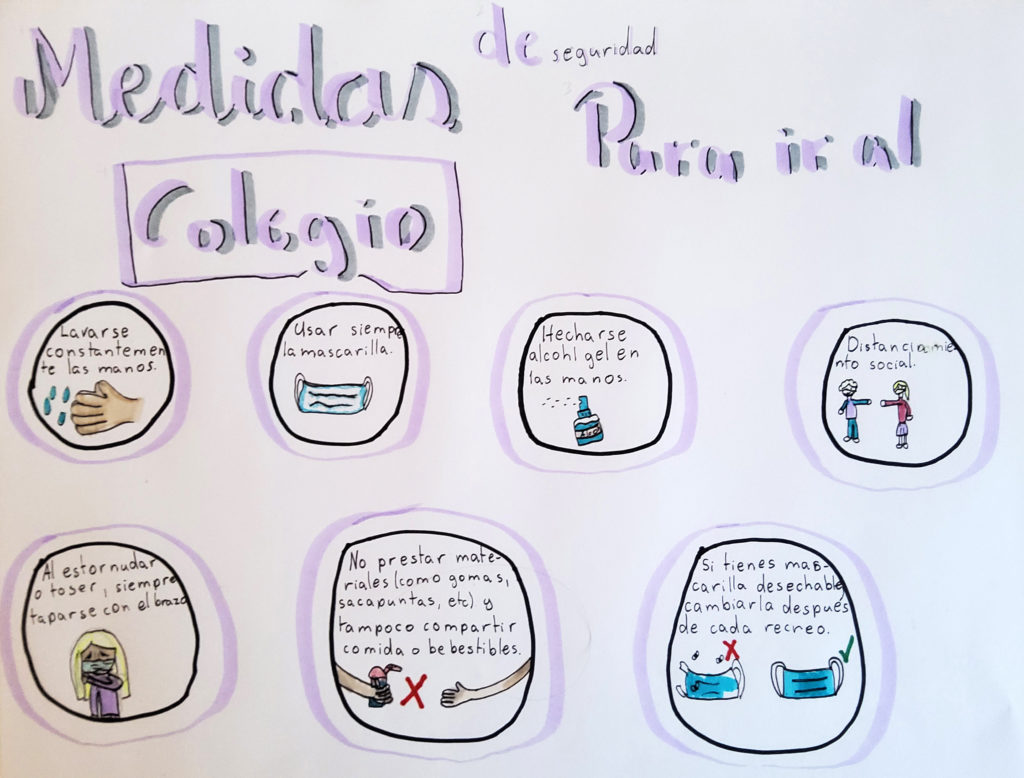 Medidas de seguridad
Para ir al
Colegio
Lavarse
constantemen
te las manos.
Usar siempre
la mascarilla.
Hecharse
alcohl gel en
las manos.
Alcohol
Distanciamie-
nto social.
Al estornudar
o toser, siempre
taparse con el brazo
No prestar mate-
riales (como gomas,
sacapuntas, etc) y
tampoco compartir
comida o bebestibles.
Si tienes mas-
carilla desechable,
cambiarla después
de cada recreo.